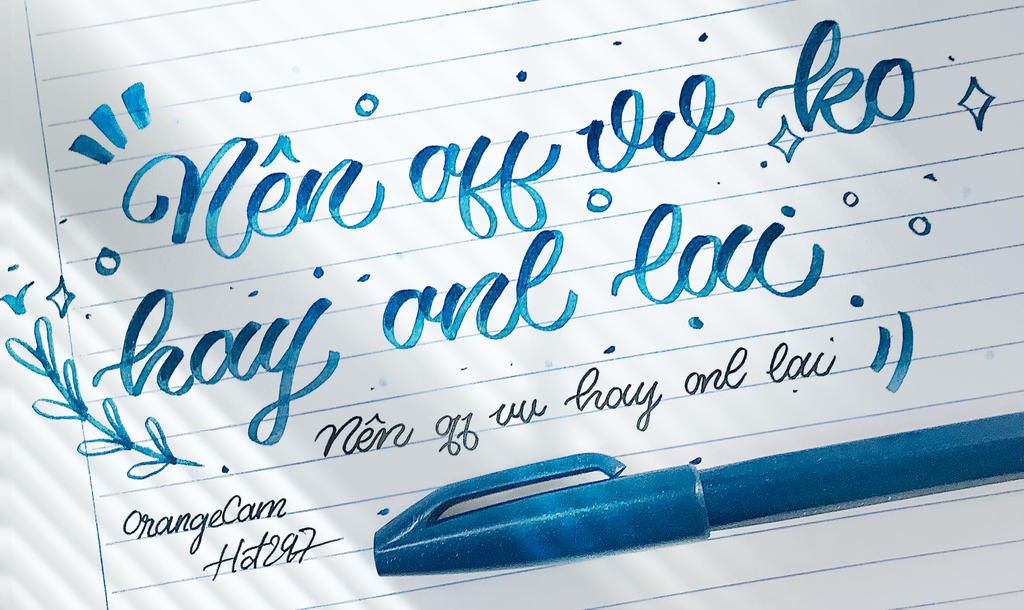 Nên off vv ko
hay onl lại
Nên off vv hay onl lại
OrangeCam
Hot297